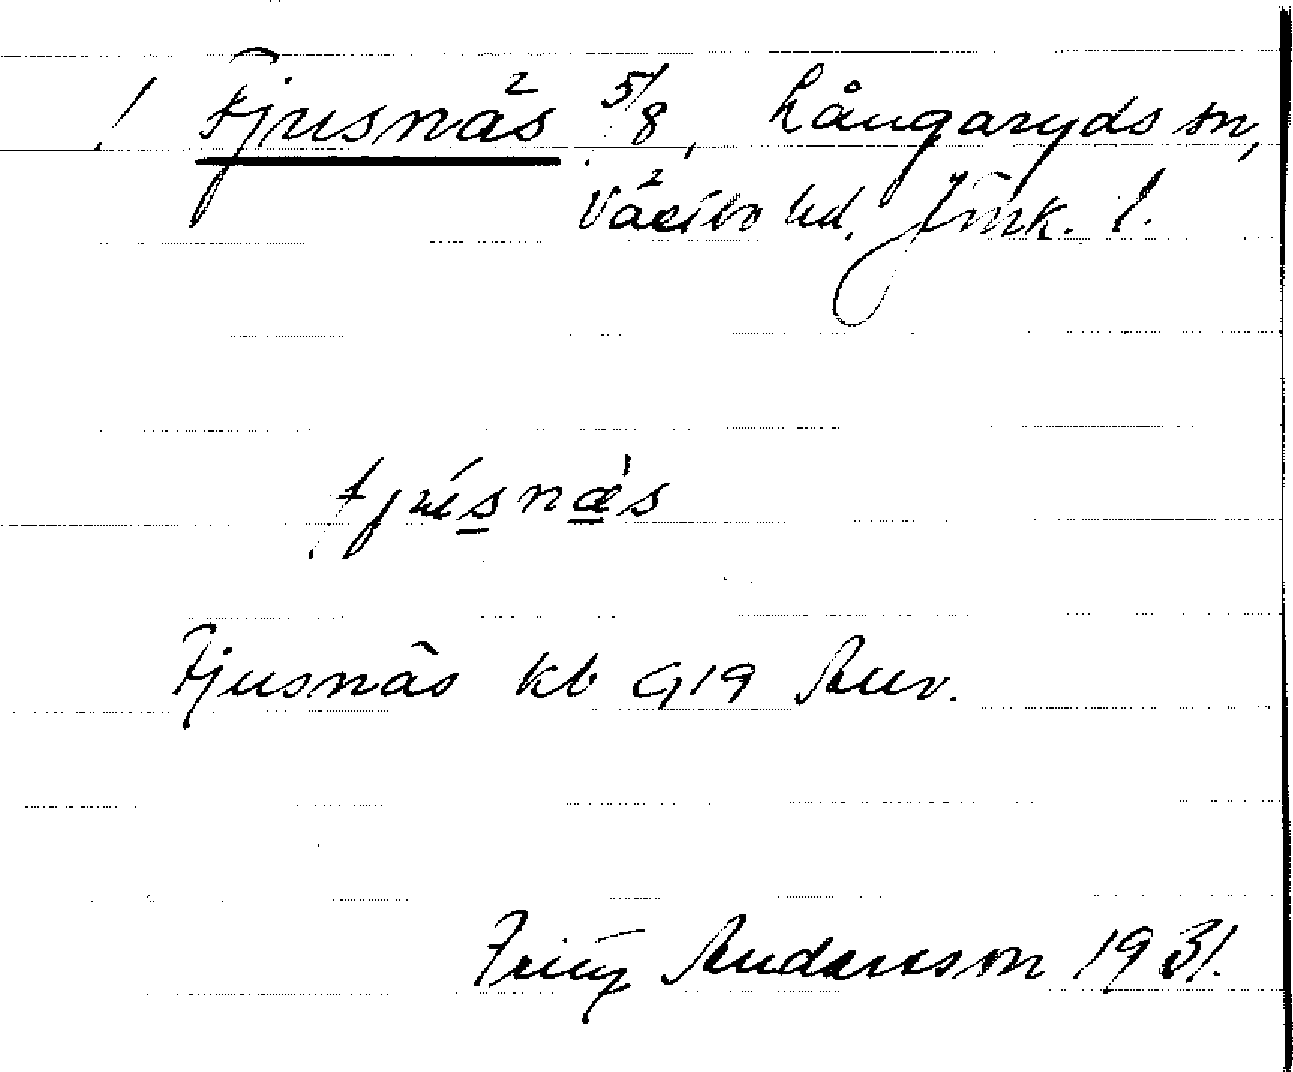 ! Fjusnäs 5/8, Långaryds sn,
Västbo hd. Jönk. l.
fjúsnæ̀s
Fjusnäs kb 1919 Auv.
Fritz Andersson 1931.